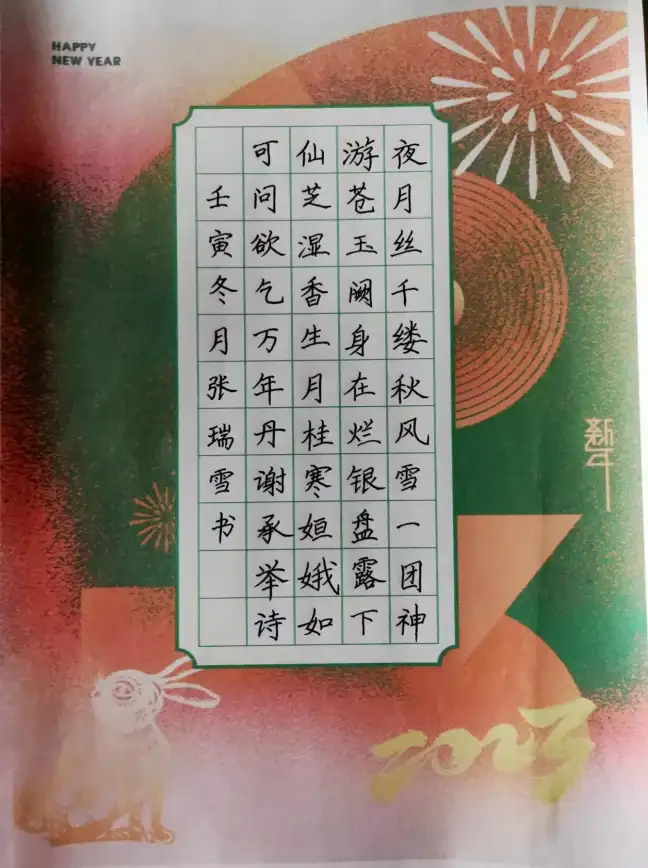 HAPPY
NEW YEAR
夜月丝千缕秋风雪一团神
游苍玉阙身在烂银盘露下
仙芝湿香生月桂寒姮娥如
可问欲乞万年丹谢承举诗
壬寅冬月张瑞雪书
新年
2023